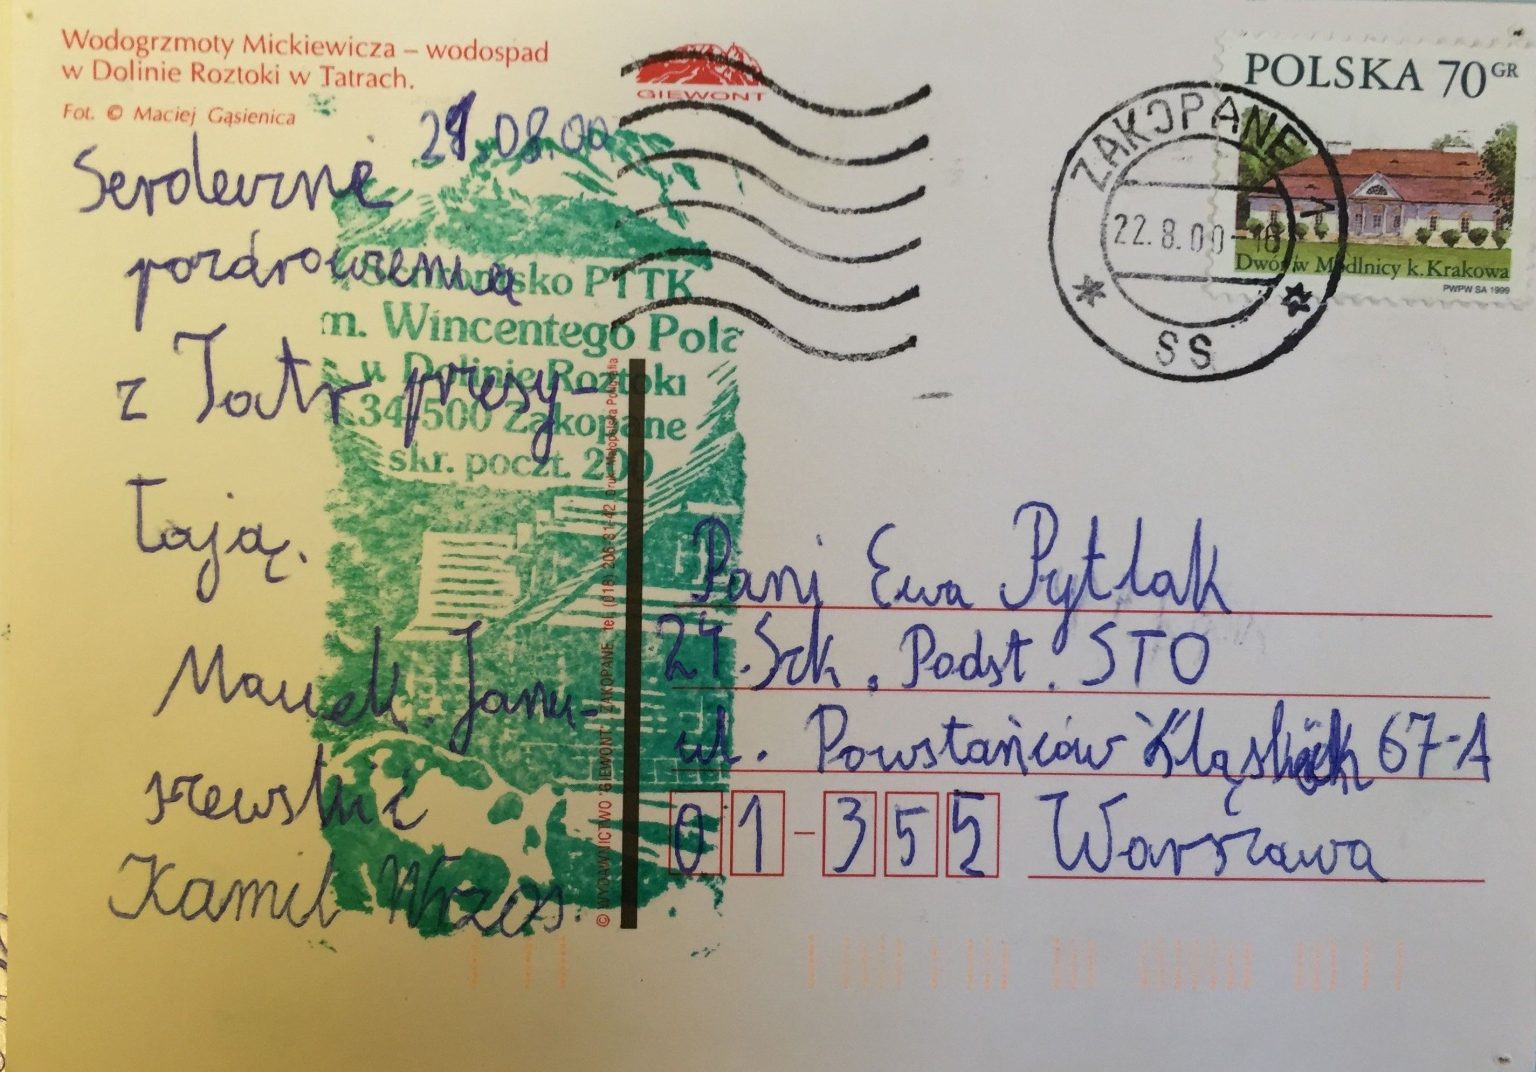 Wodogrzmoty Mickiewicza – wodospad
w Dolinie Roztoki w Tatrach.
Fot. © Maciej Gąsienica
GIEWONT
POLSKA 70 GR
Dwór w Modlnicy k. Krakowa
PWPW SA 1999
ZAKOPANE 1
22.8.00-18
SS
08.00
Serdeczne
pozdrowienia
z Tatr przesy-
łają.
Marek Janu-
szewski i
Kamil Wrzos.
Schronisko PTTK
m. Wincentego Pola
w Dolinie Roztoki
34-500 Zakopane
skr. poczt. 200
© WYDAWNICTWO "GIEWONT" ZAKOPANE, tel. (018) 206-81-42
Pani Ewa Pytlak
24. Szk. Podst. STO
ul. Powstańców Śląskich 67-A
01-355 Warszawa